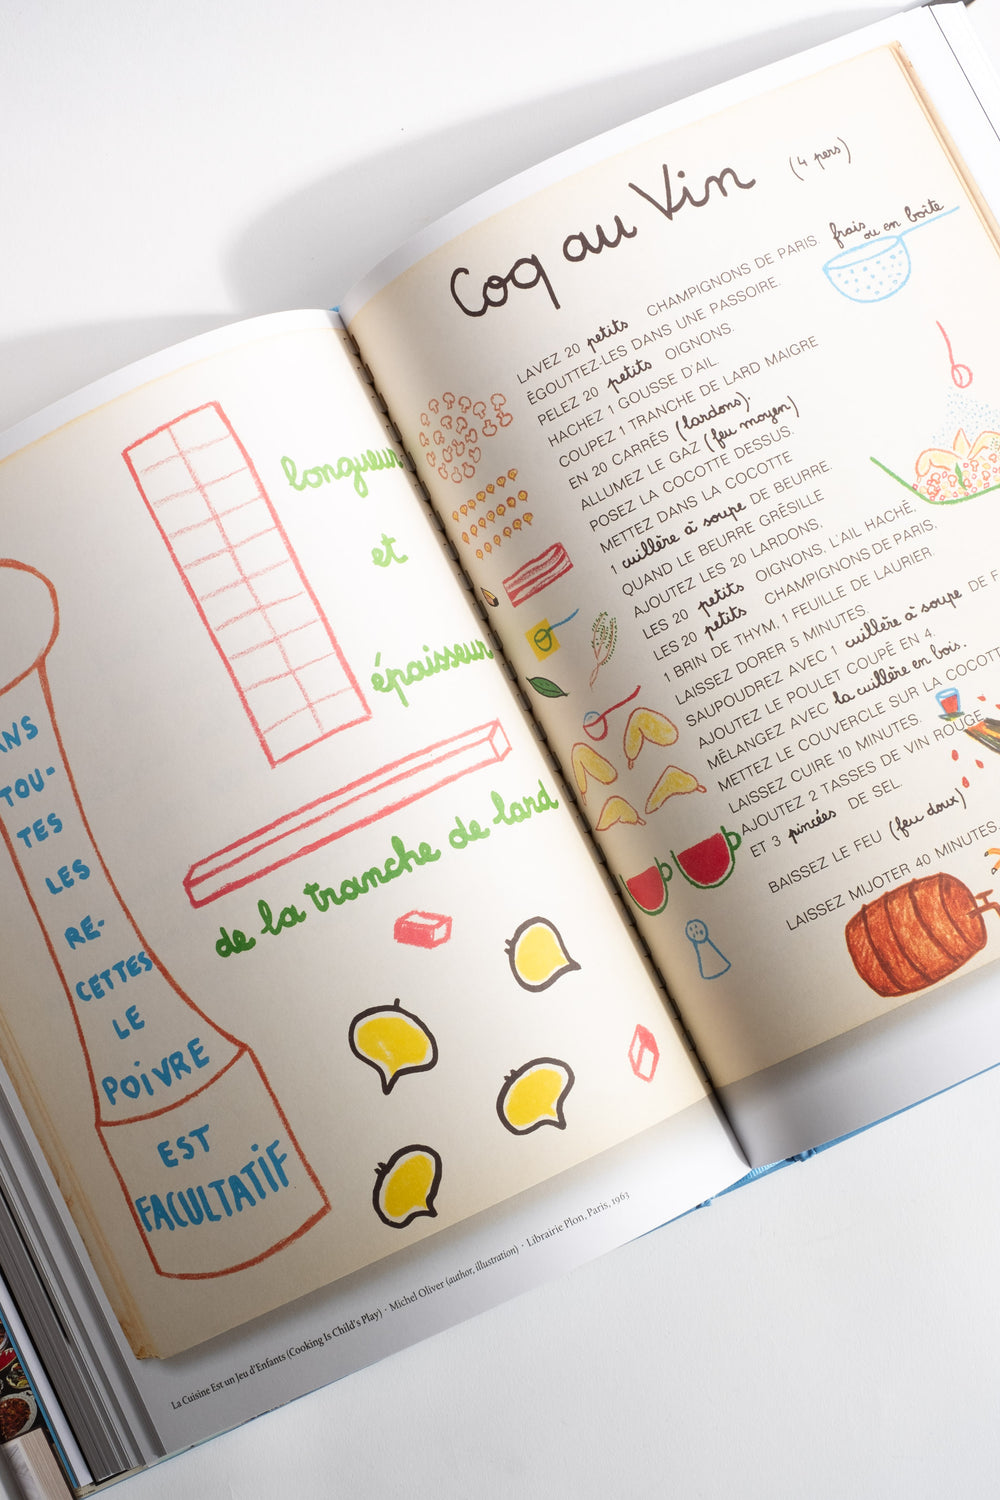 TOU-
TES
LES
RE-
CETTES
LE
POIVRE
EST
FACULTATIF
longueur
et
épaisseur
de la tranche de lard
La Cuisine Est un Jeu d'Enfants (Cooking Is Child's Play) · Michel Oliver (author, illustration) · Librairie Plon, Paris, 1963
Coq au Vin (4 pers)
LAVEZ 20 petits CHAMPIGNONS DE PARIS. frais ou en boîte
ÉGOUTTEZ-LES DANS UNE PASSOIRE.
PELEZ 20 petits OIGNONS.
HACHEZ 1 GOUSSE D'AIL.
COUPEZ 1 TRANCHE DE LARD MAIGRE
EN 20 CARRÉS (lardons).
ALLUMEZ LE GAZ (feu moyen)
POSEZ LA COCOTTE DESSUS.
METTEZ DANS LA COCOTTE
1 cuillère à soupe DE BEURRE.
QUAND LE BEURRE GRÉSILLE
AJOUTEZ LES 20 LARDONS,
LES 20 petits OIGNONS, L'AIL HACHÉ,
LES 20 petits CHAMPIGNONS DE PARIS,
1 BRIN DE THYM, 1 FEUILLE DE LAURIER.
LAISSEZ DORER 5 MINUTES.
SAUPOUDREZ AVEC 1 cuillère à soupe DE
AJOUTEZ LE POULET COUPÉ EN 4.
MÉLANGEZ AVEC la cuillère en bois.
METTEZ LE COUVERCLE SUR LA COCOTT
LAISSEZ CUIRE 10 MINUTES.
AJOUTEZ 2 TASSES DE VIN ROUGE
ET 3 pincées DE SEL.
BAISSEZ LE FEU (feu doux)
LAISSEZ MIJOTER 40 MINUTES